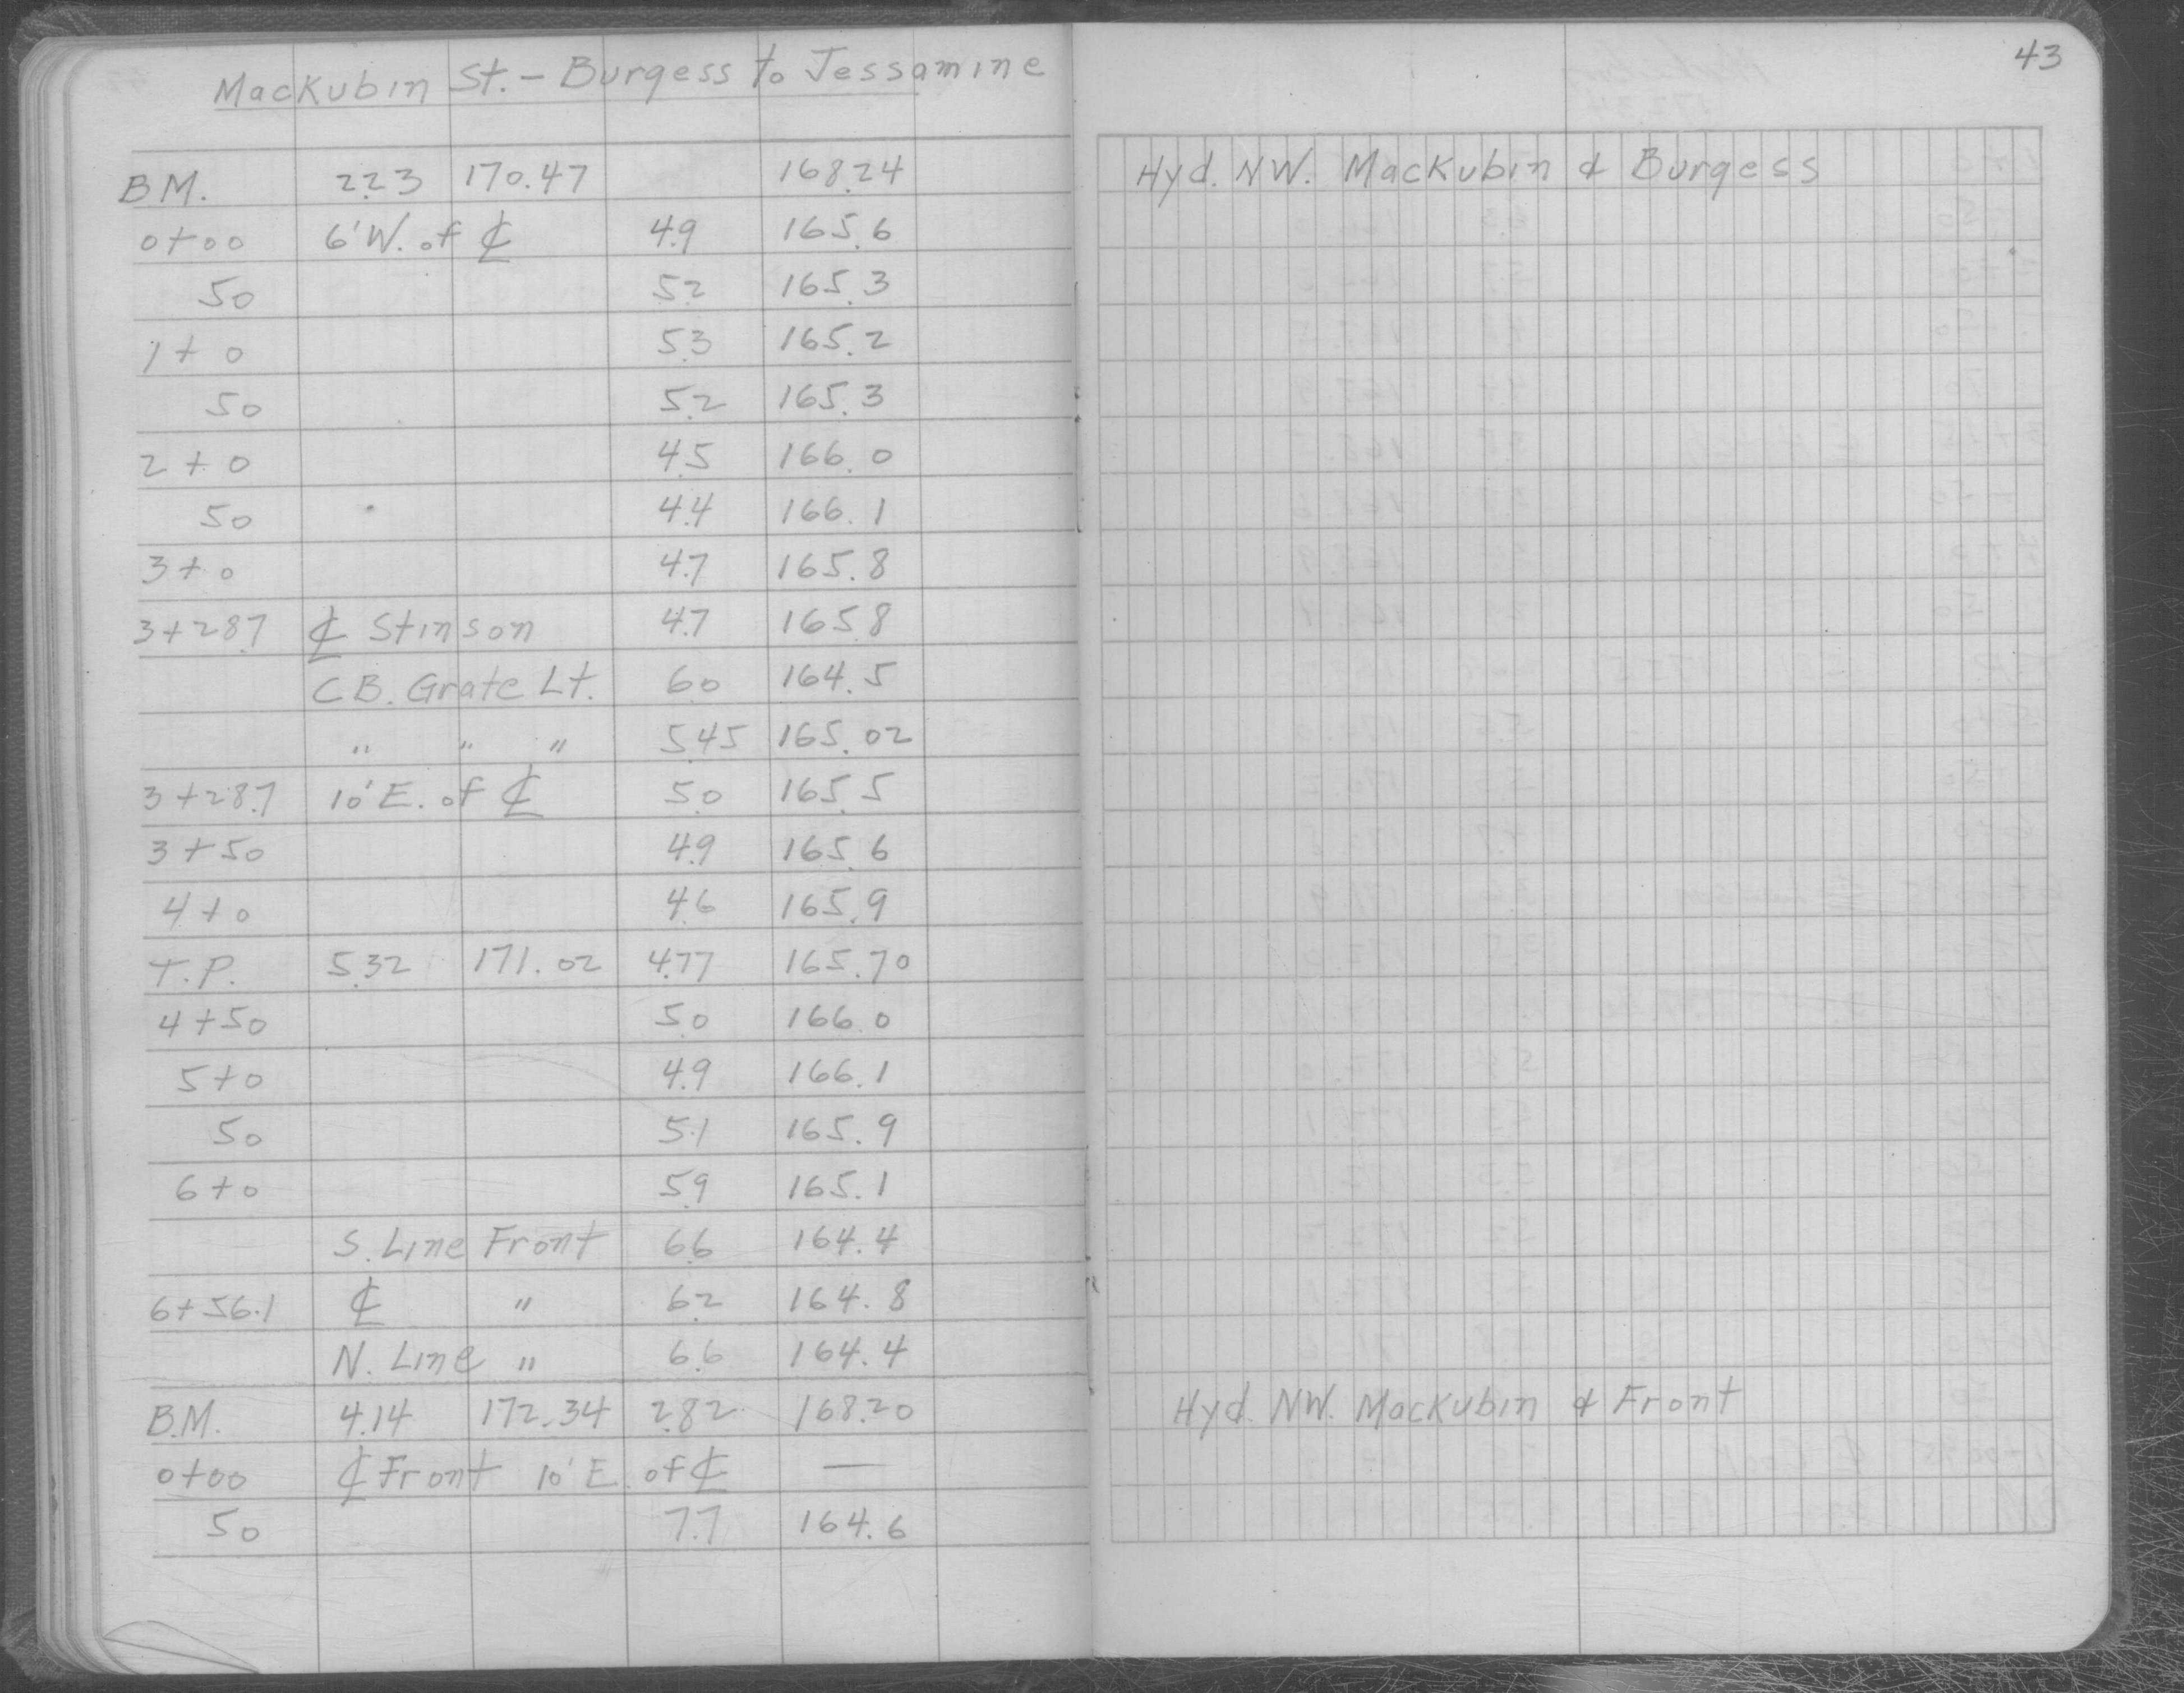 MacKubin St. – Burgess to Jessamine
43
B.M. 2.23 170.47 168.24 Hyd. NW. MacKubin & Burgess
0+00 6' W. of ℄ 4.9 165.6
50 5.2 165.3
1+0 5.3 165.2
50 5.2 165.3
2+0 4.5 166.0
50 4.4 166.1
3+0 4.7 165.8
3+28.7 ℄ Stinson 4.7 165.8
C.B. Grate Lt. 6.0 164.5
" " " 5.45 165.02
3+28.7 10' E. of ℄ 5.0 165.5
3+50 4.9 165.6
4+0 4.6 165.9
T.P. 5.32 171.02 4.77 165.70
4+50 5.0 166.0
5+0 4.9 166.1
50 5.1 165.9
6+0 5.9 165.1
S. Line Front 6.6 164.4
6+56.1 ℄ " 6.2 164.8
N. Line " 6.6 164.4
B.M. 4.14 172.34 2.82 168.20 Hyd. NW. MacKubin & Front
0+00 ℄ Front 10' E. of ℄ —
50 7.7 164.6